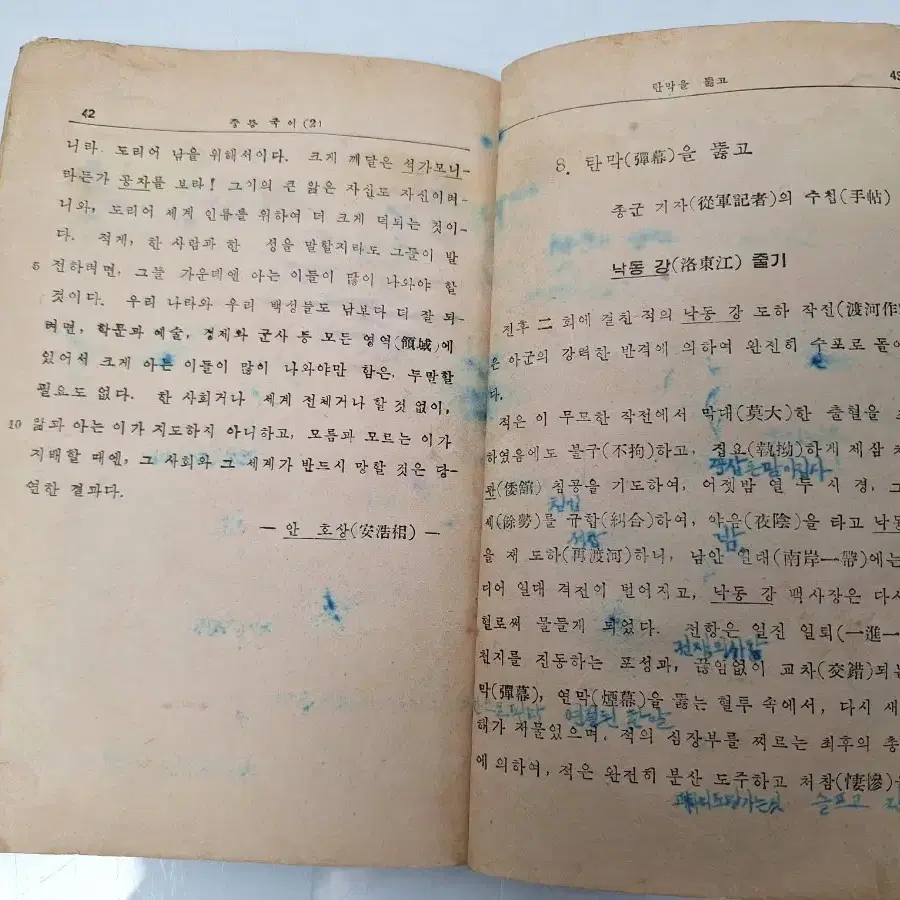 42
중등 국어(2)
니라. 도리어 남을 위해서이다. 크게 깨달은 석가모니
라든가 공자를 보라! 그이의 큰 앎은 자신도 자신이려
니와, 도리어 세계 인류를 위하여 더 크게 덕되는 것이
다. 적게, 한 사람과 한 성을 말할지라도 그들이 발
5 전하려면, 그들 가운데엔 아는 이들이 많이 나와야 할
것이다. 우리 나라와 우리 백성들도 남보다 더 잘 되
려면, 학문과 예술, 경제와 군사 등 모든 영역(領域)에
있어서 크게 아는 이들이 많이 나와야만 함은, 두말할
필요도 없다. 한 사회거나 세계 전체거나 할 것 없이,
10 앎과 아는 이가 지도하지 아니하고, 모름과 모르는 이가
지배할 때엔, 그 사회와 그 세계가 반드시 망할 것은 당
연한 결과다.
— 안 호상(安浩相) —
탄막을 뚫고
8. 탄막(彈幕)을 뚫고
종군 기자(從軍記者)의 수첩(手帖)
낙동 강(洛東江) 줄기
전후 二 회에 걸친 적의 낙동 강 도하 작전(渡河作
은 아군의 강력한 반격에 의하여 완전히 수포로 돌아
다.
적은 이 무모한 작전에서 막대(莫大)한 출혈을
하였음에도 불구(不拘)하고, 집요(執拗)하게 제삼
관(倭館) 침공을 기도하여, 어젯밤 열 두 시 경,
침입
세(餘勢)를 규합(糾合)하여, 야음(夜陰)을 타고 낙동
밤
을 재 도하(再渡河)하니, 남안 일대(南岸一帶)에는
디어 일대 격전이 벌어지고, 낙동 강 백사장은 다시
혈로써 물들게 되었다. 전황은 일진 일퇴(一進一
전쟁의상황
천지를 진동하는 포성과, 끊임없이 교차(交錯)되는
막(彈幕), 연막(煙幕)을 뚫는 혈투 속에서, 다시 새
해가 저물었으며, 적의 심장부를 찌르는 최후의 총
에 의하여, 적은 완전히 분산 도주하고 처참(悽慘)
슬프고